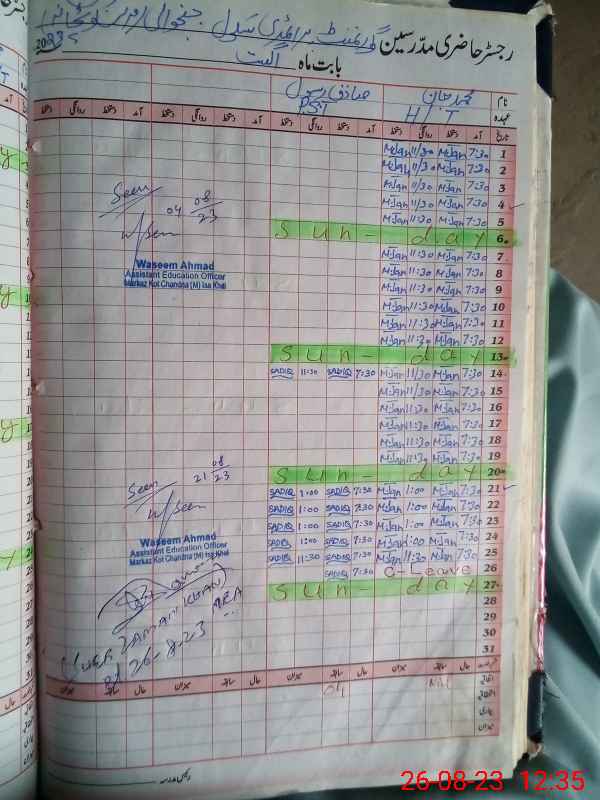 رجسٹر حاضری مدرسین گورنمنٹ پرائمری سکول
بابت ماہ اگست 2023
نام محمد جان صادق رسول
عہدہ H T PST
تاریخ آمد دستخط روانگی دستخط آمد دستخط روانگی دستخط آمد دستخط روانگی دستخط
1 7:30 M.Jan 11/30 M.Jan
2 7:30 M.Jan 11/30 M.Jan
3 7:30 M.Jan 11/30 M.Jan
4 7:30 M.Jan 11/30 M.Jan
5 7:30 M.Jan 11/30 M.Jan
6 Sun-day
7 7:30 M.Jan 11:30 M.Jan
8 7:30 M.Jan 11:30 M.Jan
9 7:30 M.Jan 11:30 M.Jan
10 7:30 M.Jan 11:30 M.Jan
11 7:30 M.Jan 11:30 M.Jan
12 7:30 M.Jan 11:30 M.Jan
13 Sun-day
14 7:30 M.Jan 11/30 M.Jan 7:30 SADIQ 11:30 SADIQ
15 7:30 M.Jan 11/30 M.Jan
16 7:30 M.Jan 11:30 M.Jan
17 7:30 M.Jan 11:30 M.Jan
18 7:30 M.Jan 11:30 M.Jan
19 7:30 M.Jan 11:30 M.Jan
20 Sun-day
21 7:30 M.Jan 1:00 M.Jan 7:30 SADIQ 1:00 SADIQ
22 7:30 M.Jan 1:00 M.Jan 7:30 SADIQ 1:00 SADIQ
23 7:30 M.Jan 1:00 M.Jan 7:30 SADIQ 1:00 SADIQ
24 7:30 M.Jan 1:00 M.Jan 7:30 SADIQ 1:00 SADIQ
25 7:30 M.Jan 11:30 M.Jan 7:30 SADIQ 11:30 SADIQ
26 C-Leave 7:30 SADIQ
27 Sun-day
28
29
30
31
Seen
04 08/23
Waseem Ahmad
Assistant Education Officer
Markaz Kot Chandna (M) Isa Khel
Seen
21 08/23
Waseem Ahmad
Assistant Education Officer
Markaz Kot Chandna (M) Isa Khel
ZAMAN KHAN)
26-8-23
26-08-23 12:35